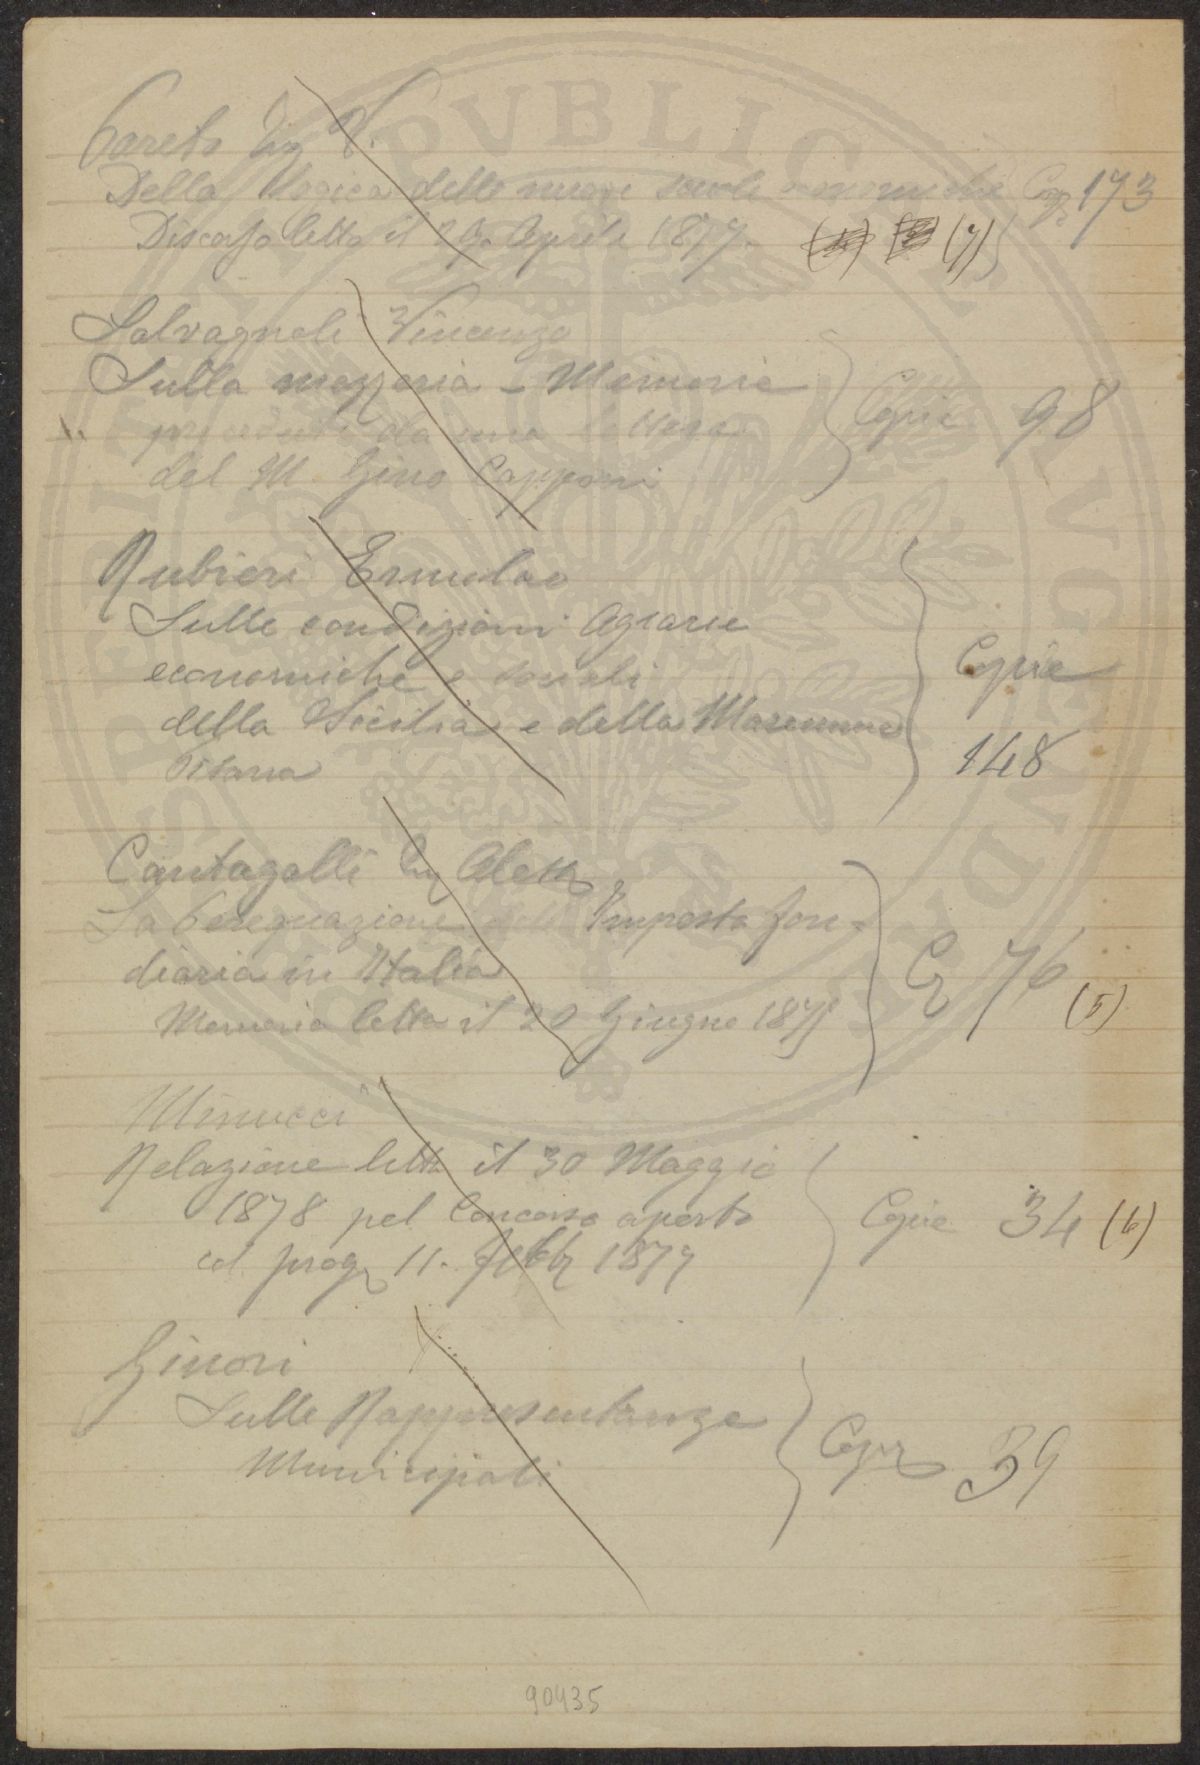 Pareto Ing V.
Della Logica delle nuove scuole economiche Cop. 173
Discorso letto il 29 Aprile 1877. (7)
Salvagnoli Vincenzo
Sulla mezzeria - Memoria
preceduta da una lettera Copie 98
del M. Gino Capponi
Rubieri Ermolao
Sulle condizioni Agrarie
economiche e sociali Copie
della Sicilia e della Maremma
Pisana 148
Cantagalli Ing Aless
La Perequazione dell' Imposta fon-
diaria in Italia C 76
Memoria letta il 20 Giugno 1875 (5)
Minucci
Relazione letta il 30 Maggio
1878 pel Concorso aperto Copie 34 (6)
col prog 11. Febb 1877
Ginori
Sulle Rappresentanze
Municipali Copie 39
90435
PVBLICAE
AVGENDAE
PROSPERITATI